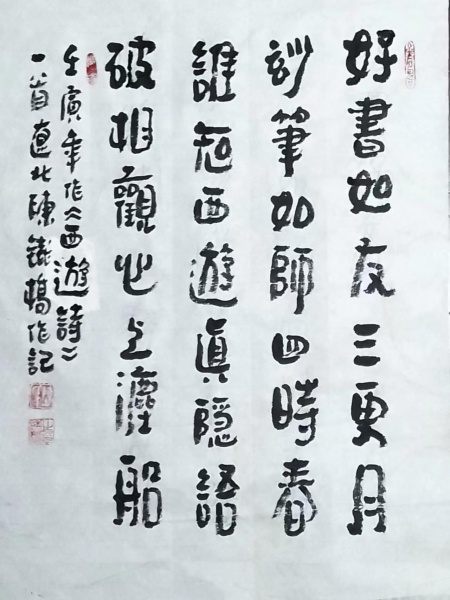 好書如友三更月
妙筆如師四時春
誰知西遊真隱語
破相觀心上灋船
壬寅年作《西遊詩》
一首遼北陳鐵橋作記